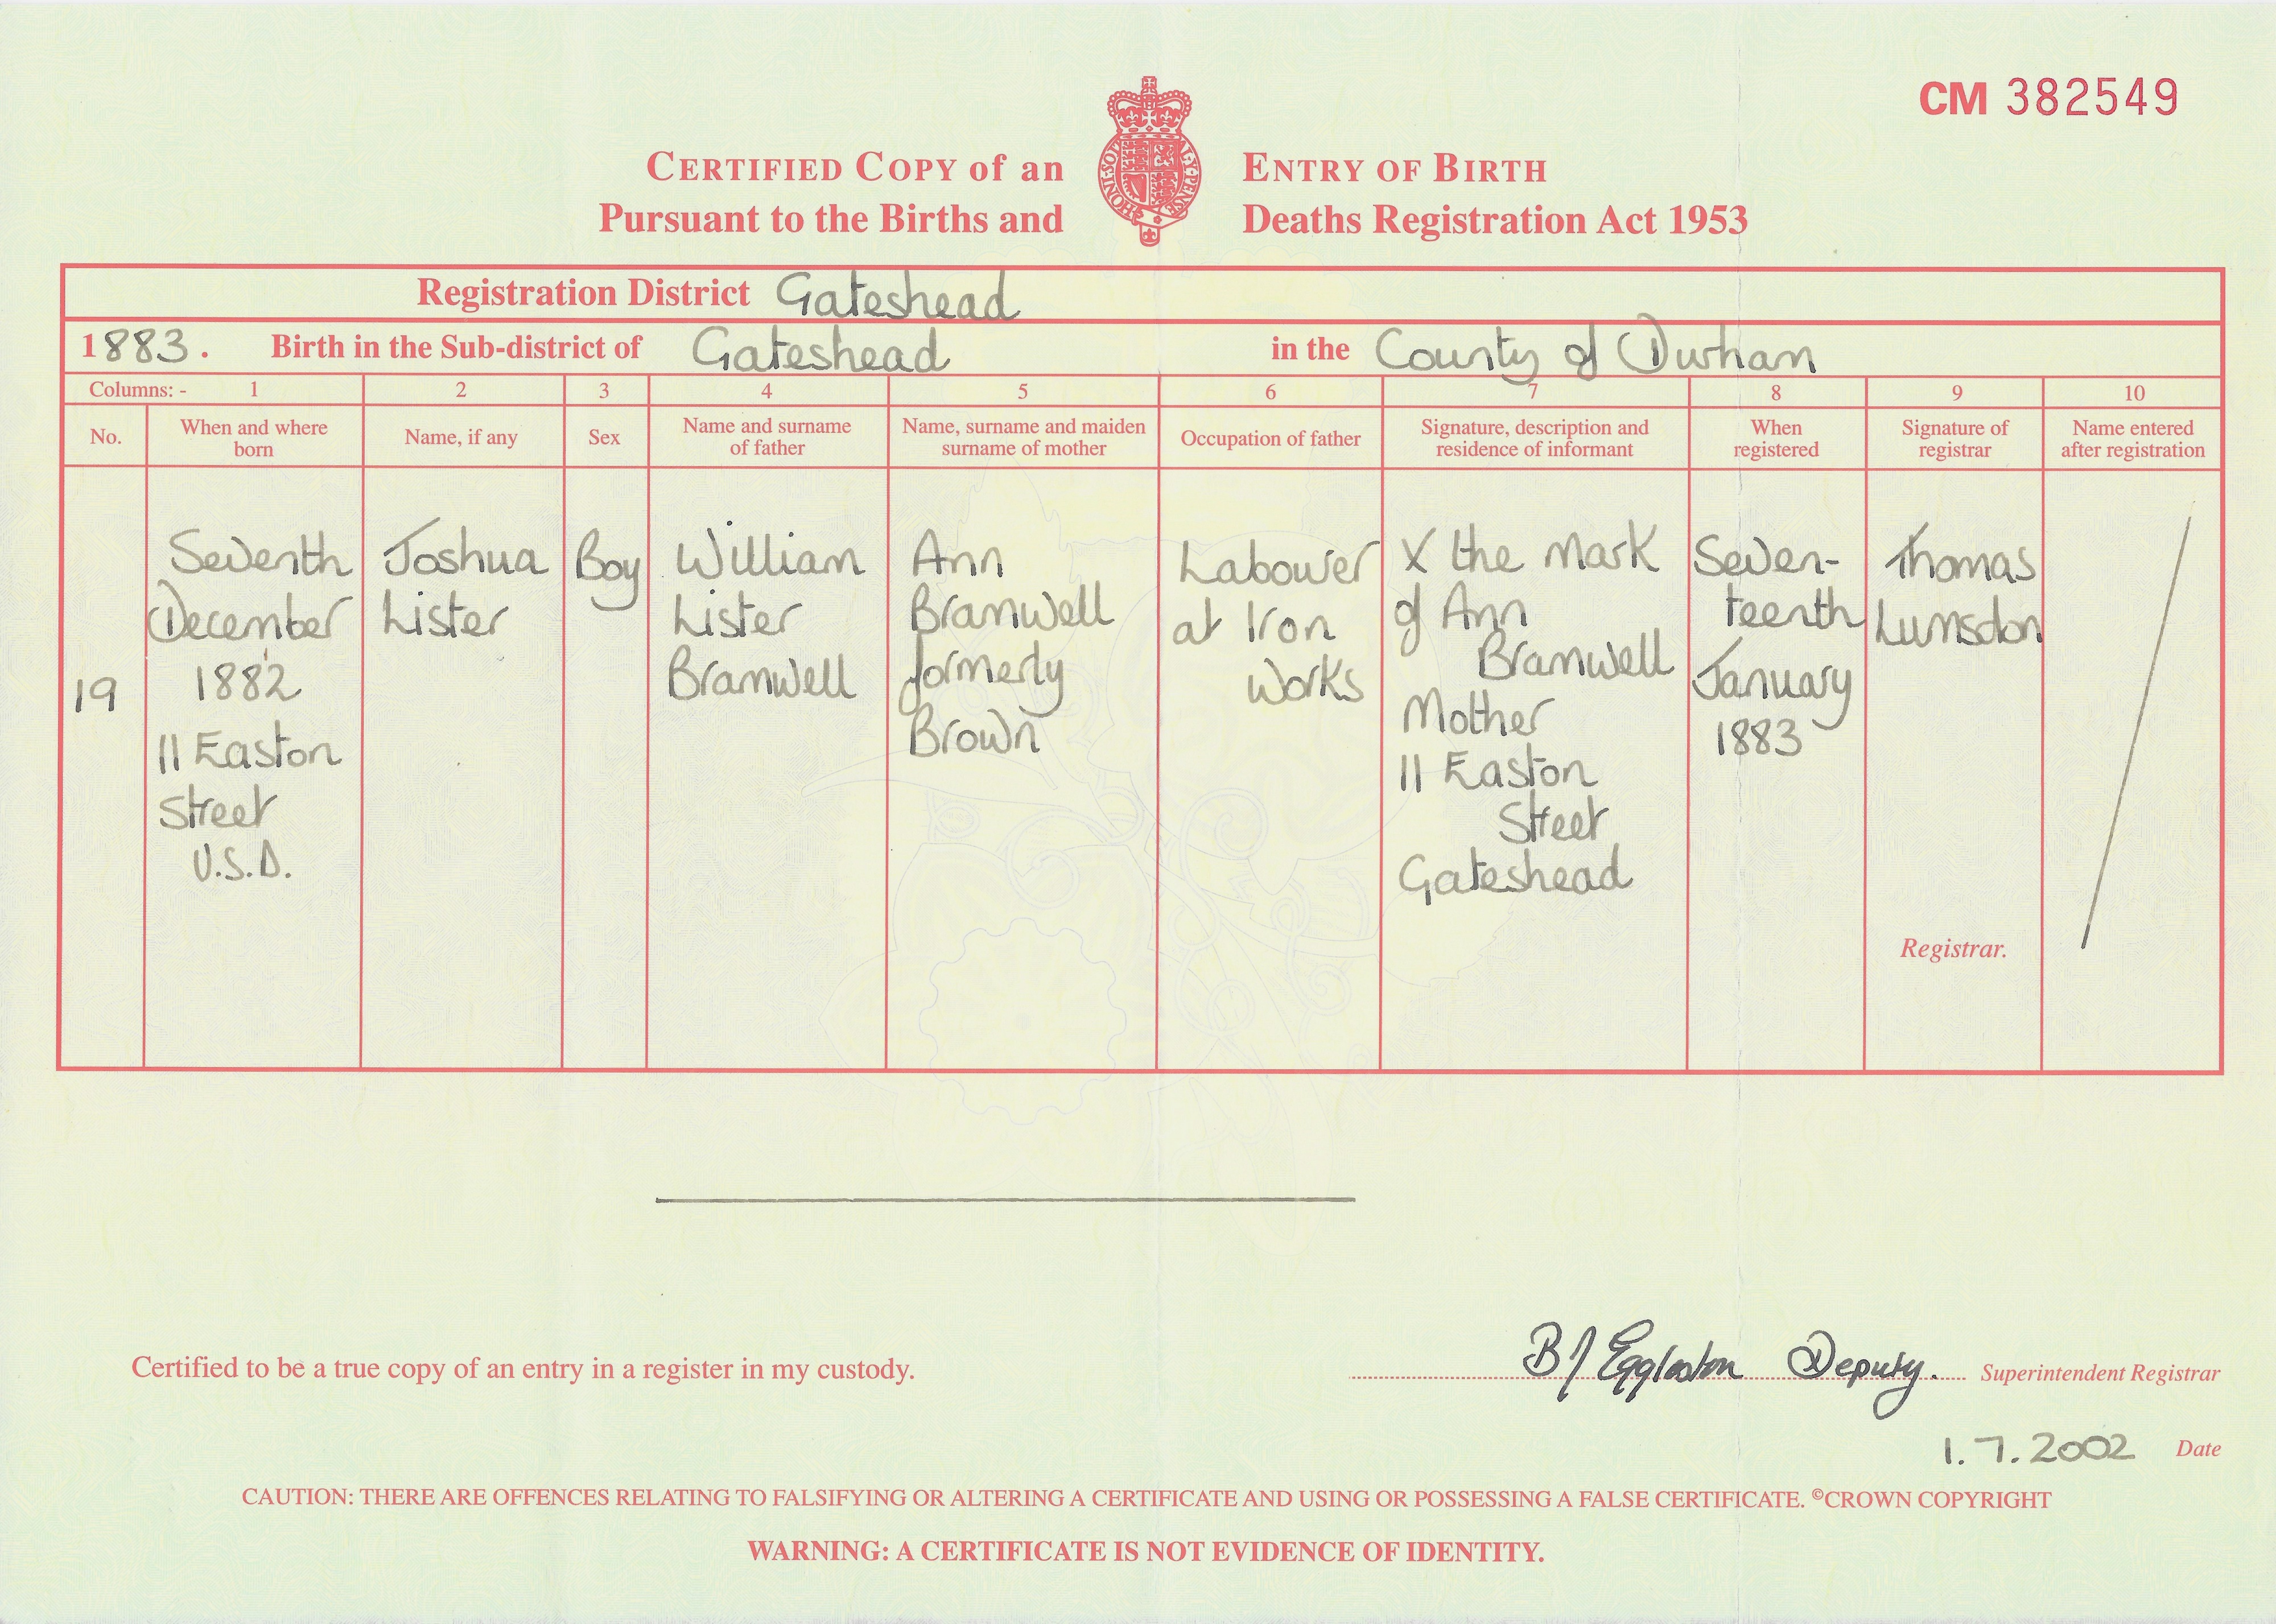 CM 382549
CERTIFIED COPY of an ENTRY OF BIRTH
Pursuant to the Births and Deaths Registration Act 1953
HONI·SOI AL·Y·PENSE
Registration District Gateshead
1883. Birth in the Sub-district of Gateshead in the County of Durham
Columns: - 1 2 3 4 5 6 7 8 9 10
No.
When and where
born
Name, if any
Sex
Name and surname
of father
Name, surname and maiden
surname of mother
Occupation of father
Signature, description and
residence of informant
When
registered
Signature of
registrar
Name entered
after registration
19
Seventh
December
1882
11 Easton
Street
U.S.D.
Joshua
Lister
Boy
William
Lister
Bramwell
Ann
Bramwell
formerly
Brown
Labourer
at Iron
Works
X the mark
of Ann
Bramwell
Mother
11 Easton
Street
Gateshead
Seven-
teenth
January
1883
Thomas
Lumsdon
Registrar.
Certified to be a true copy of an entry in a register in my custody.
B J Eggleston Deputy. Superintendent Registrar
1.7.2002 Date
CAUTION: THERE ARE OFFENCES RELATING TO FALSIFYING OR ALTERING A CERTIFICATE AND USING OR POSSESSING A FALSE CERTIFICATE. ©CROWN COPYRIGHT
WARNING: A CERTIFICATE IS NOT EVIDENCE OF IDENTITY.